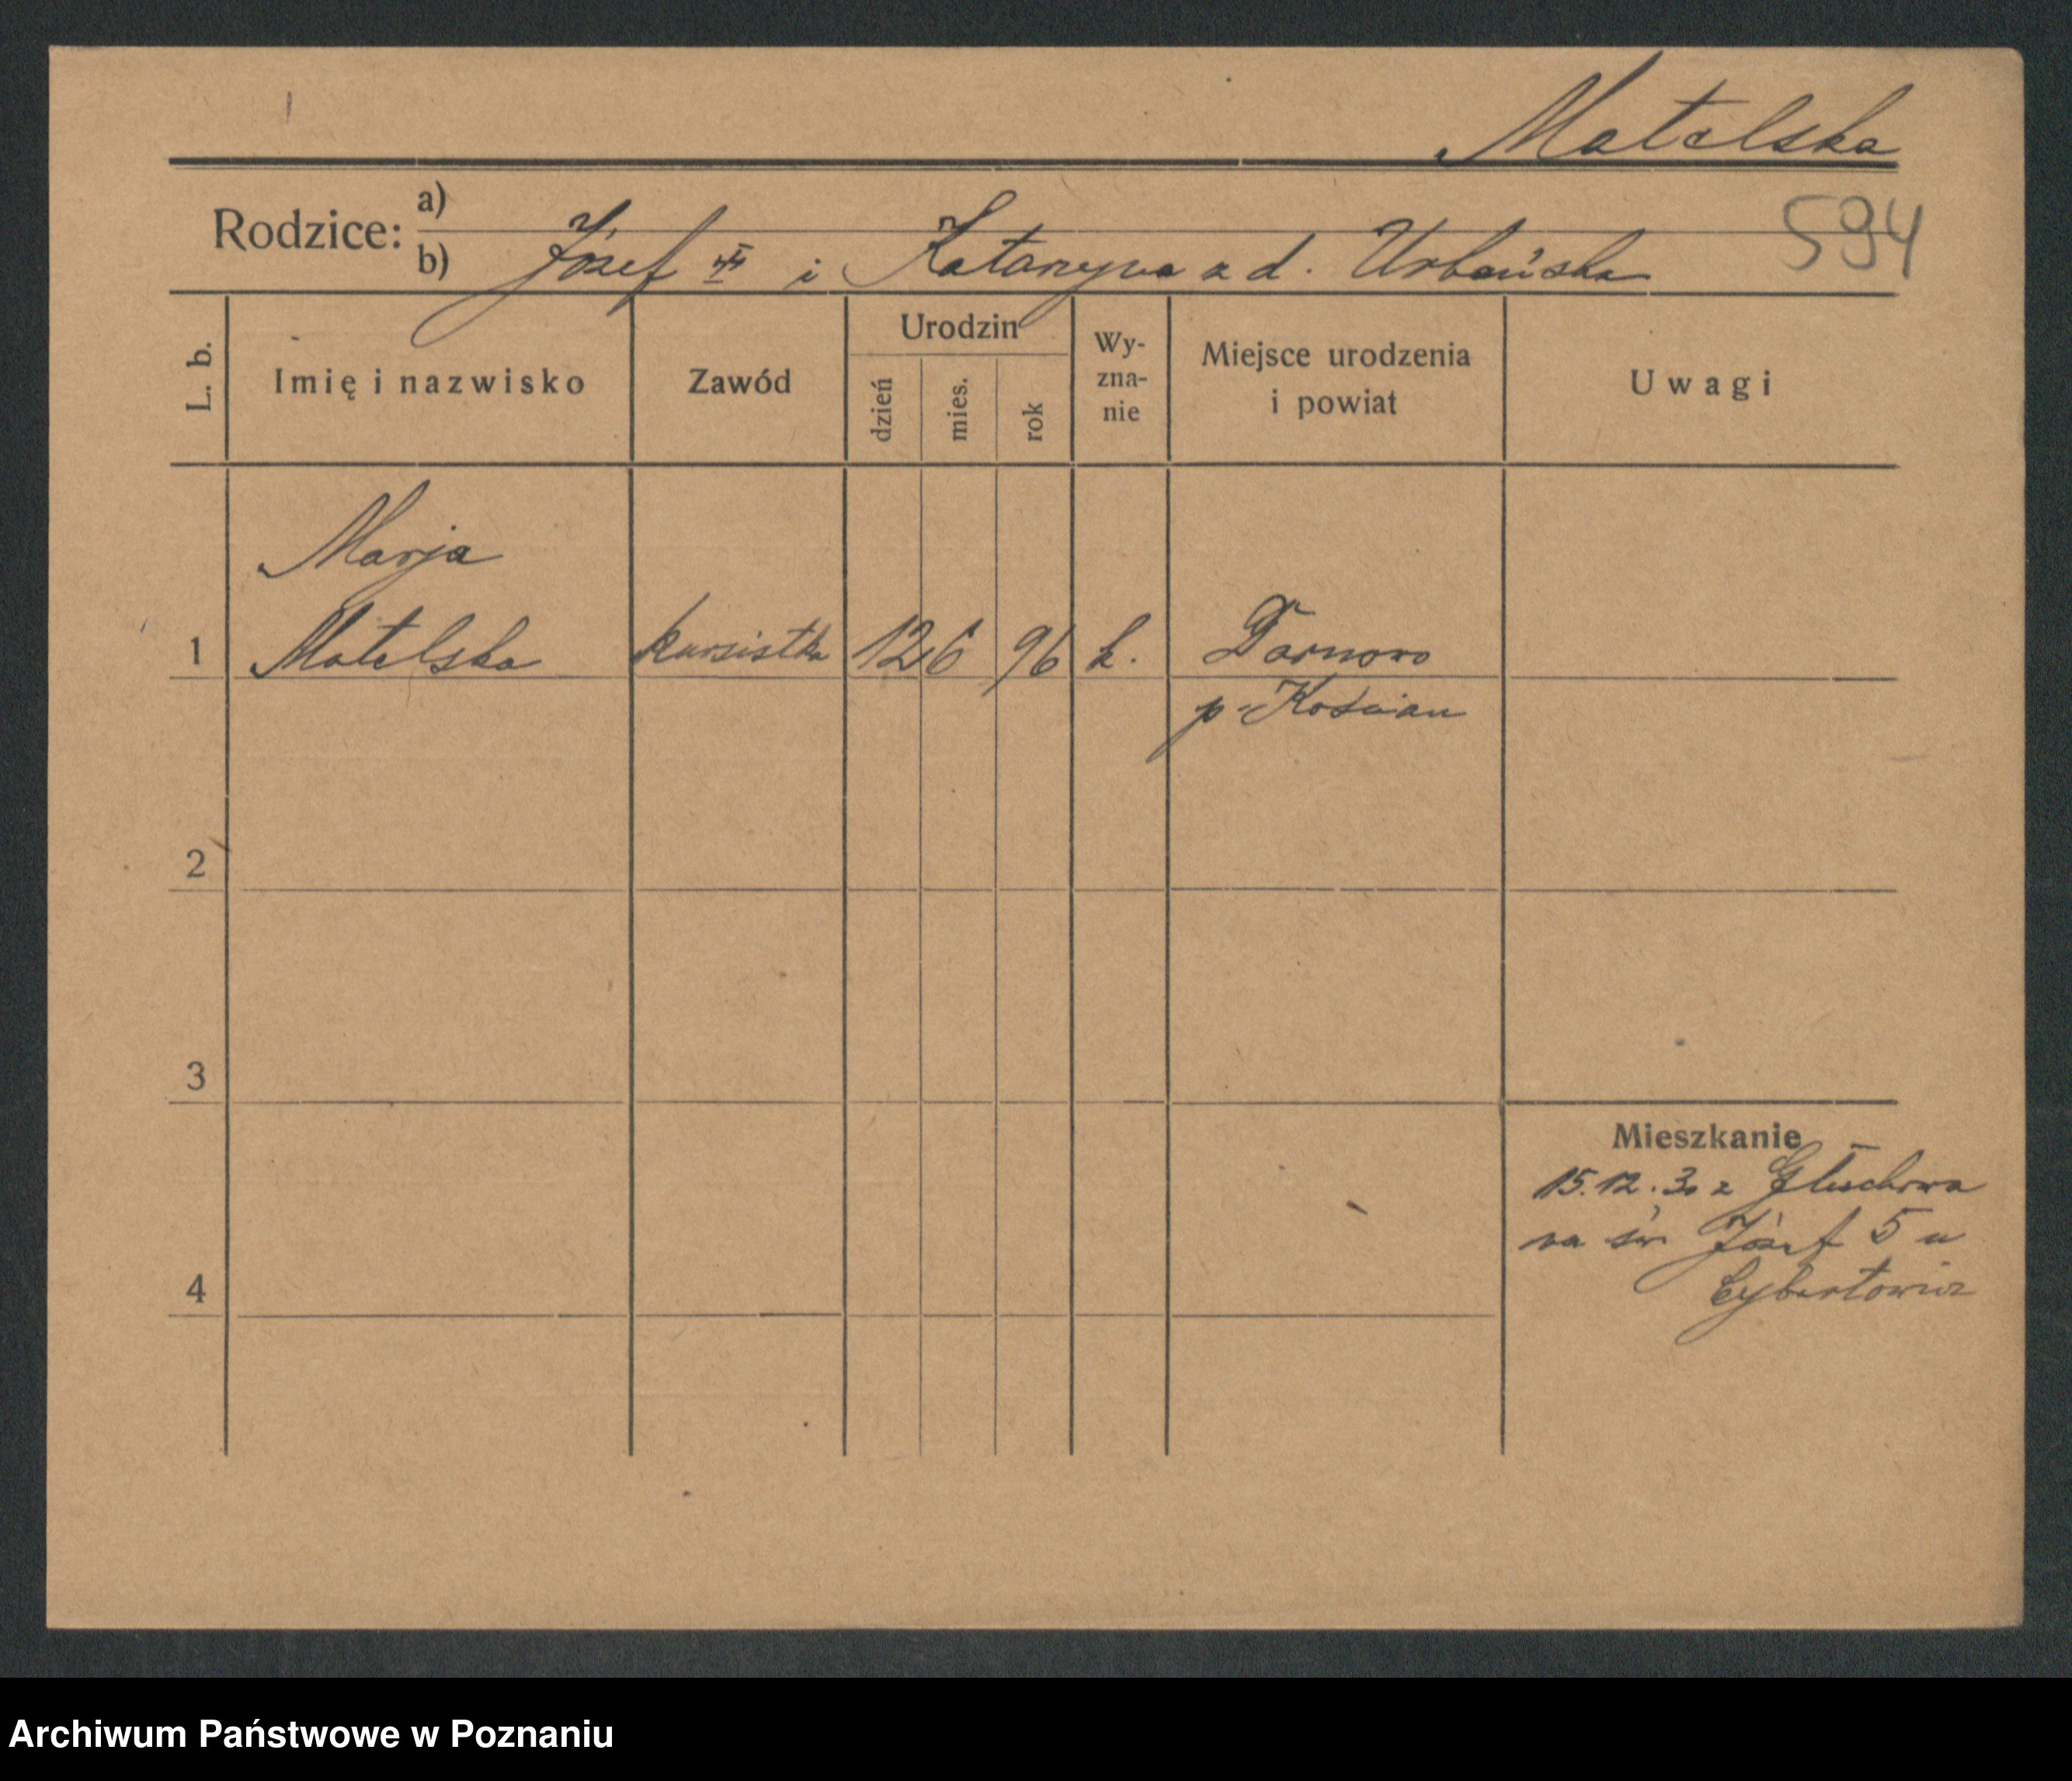 Matelska
Rodzice: a)
b) Józef i Katarzyna z d. Urbańska
594
L. b.
Imię i nazwisko
Zawód
Urodzin
dzień
mies.
rok
Wy-
zna-
nie
Miejsce urodzenia
i powiat
Uwagi
Marja
1 Matelska kursistka 12 6 96 k. Darnowo
p. Kościan
2
3
4
Mieszkanie
15.12.30 z Głuchowa
na św. Józef 5 u
Cybertowicz
Archiwum Państwowe w Poznaniu